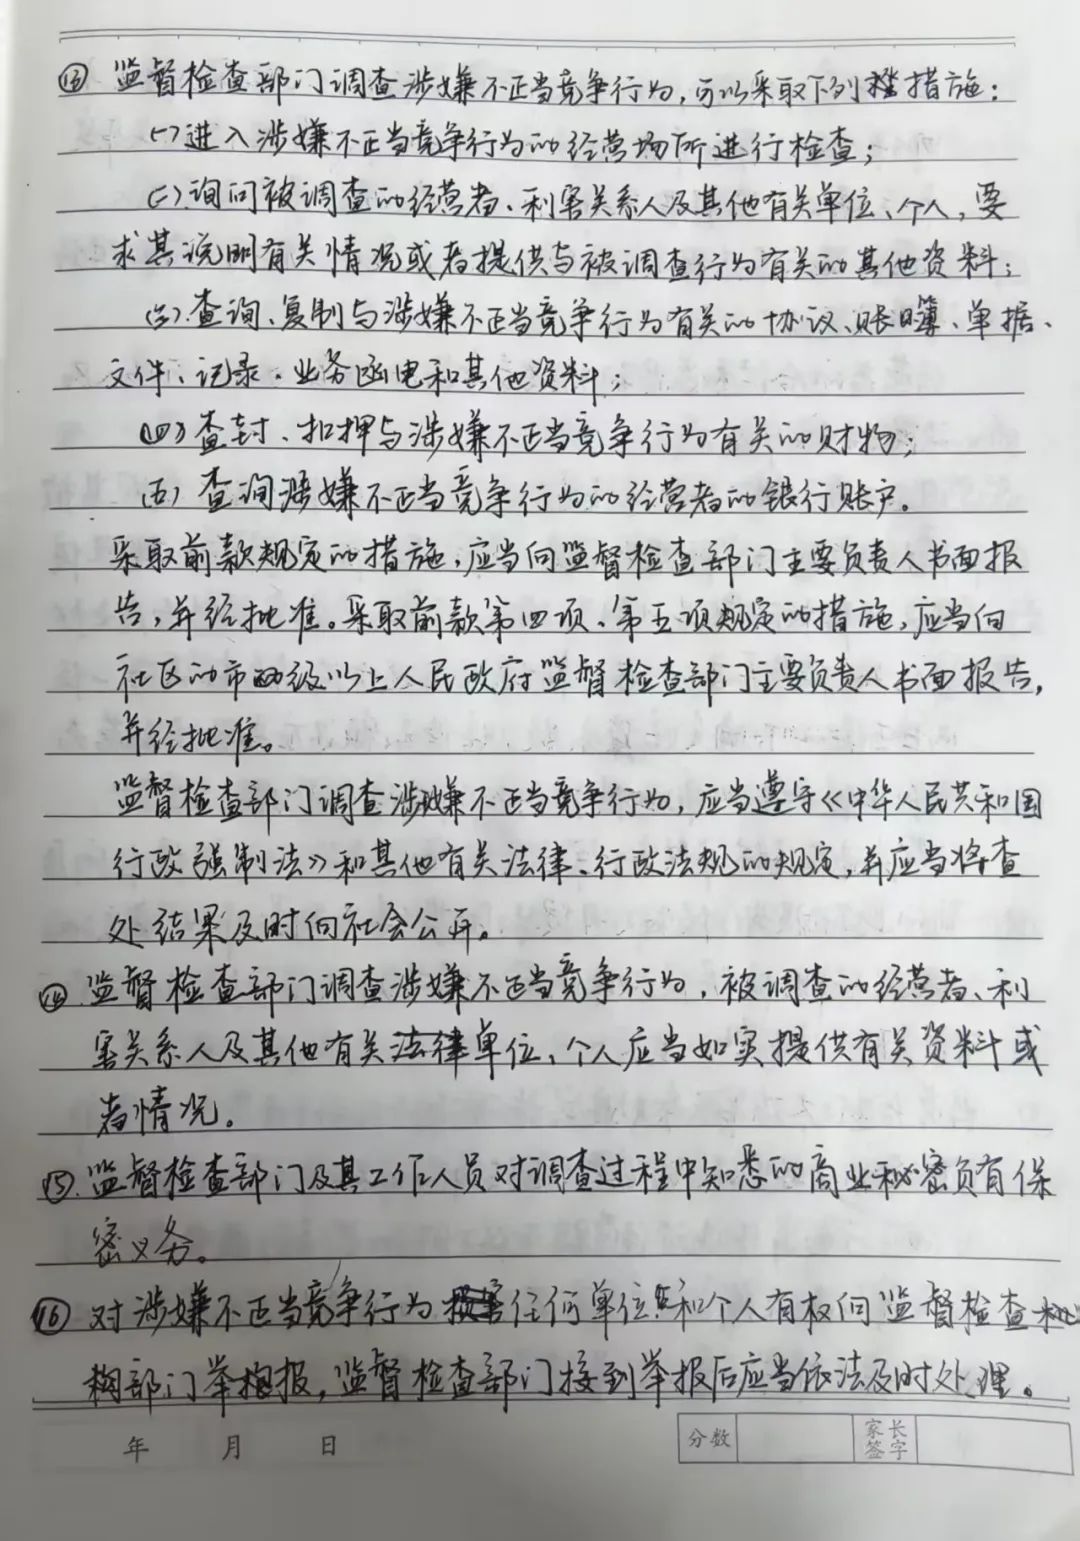 ⑬ 监督检查部门调查涉嫌不正当竞争行为,可以采取下列措施:
(一)进入涉嫌不正当竞争行为的经营场所进行检查;
(二)询问被调查的经营者、利害关系人及其他有关单位、个人,要
求其说明有关情况或者提供与被调查行为有关的其他资料;
(三)查询、复制与涉嫌不正当竞争行为有关的协议、账簿、单据、
文件、记录、业务函电和其他资料;
(四)查封、扣押与涉嫌不正当竞争行为有关的财物;
(五)查询涉嫌不正当竞争行为的经营者的银行账户。
采取前款规定的措施,应当向监督检查部门主要负责人书面报
告,并经批准。采取前款第四项、第五项规定的措施,应当向
社区的市级以上人民政府监督检查部门主要负责人书面报告,
并经批准。
监督检查部门调查涉嫌不正当竞争行为,应当遵守《中华人民共和国
行政强制法》和其他有关法律、行政法规的规定,并应当将查
处结果及时向社会公开。
⑭ 监督检查部门调查涉嫌不正当竞争行为,被调查的经营者、利
害关系人及其他有关法律单位、个人应当如实提供有关资料或
者情况。
⑮ 监督检查部门及其工作人员对调查过程中知悉的商业秘密负有保
密义务。
⑯ 对涉嫌不正当竞争行为任何单位和个人有权向监督检查
部门举报,监督检查部门接到举报后应当依法及时处理。
年 月 日 分数 家长签字